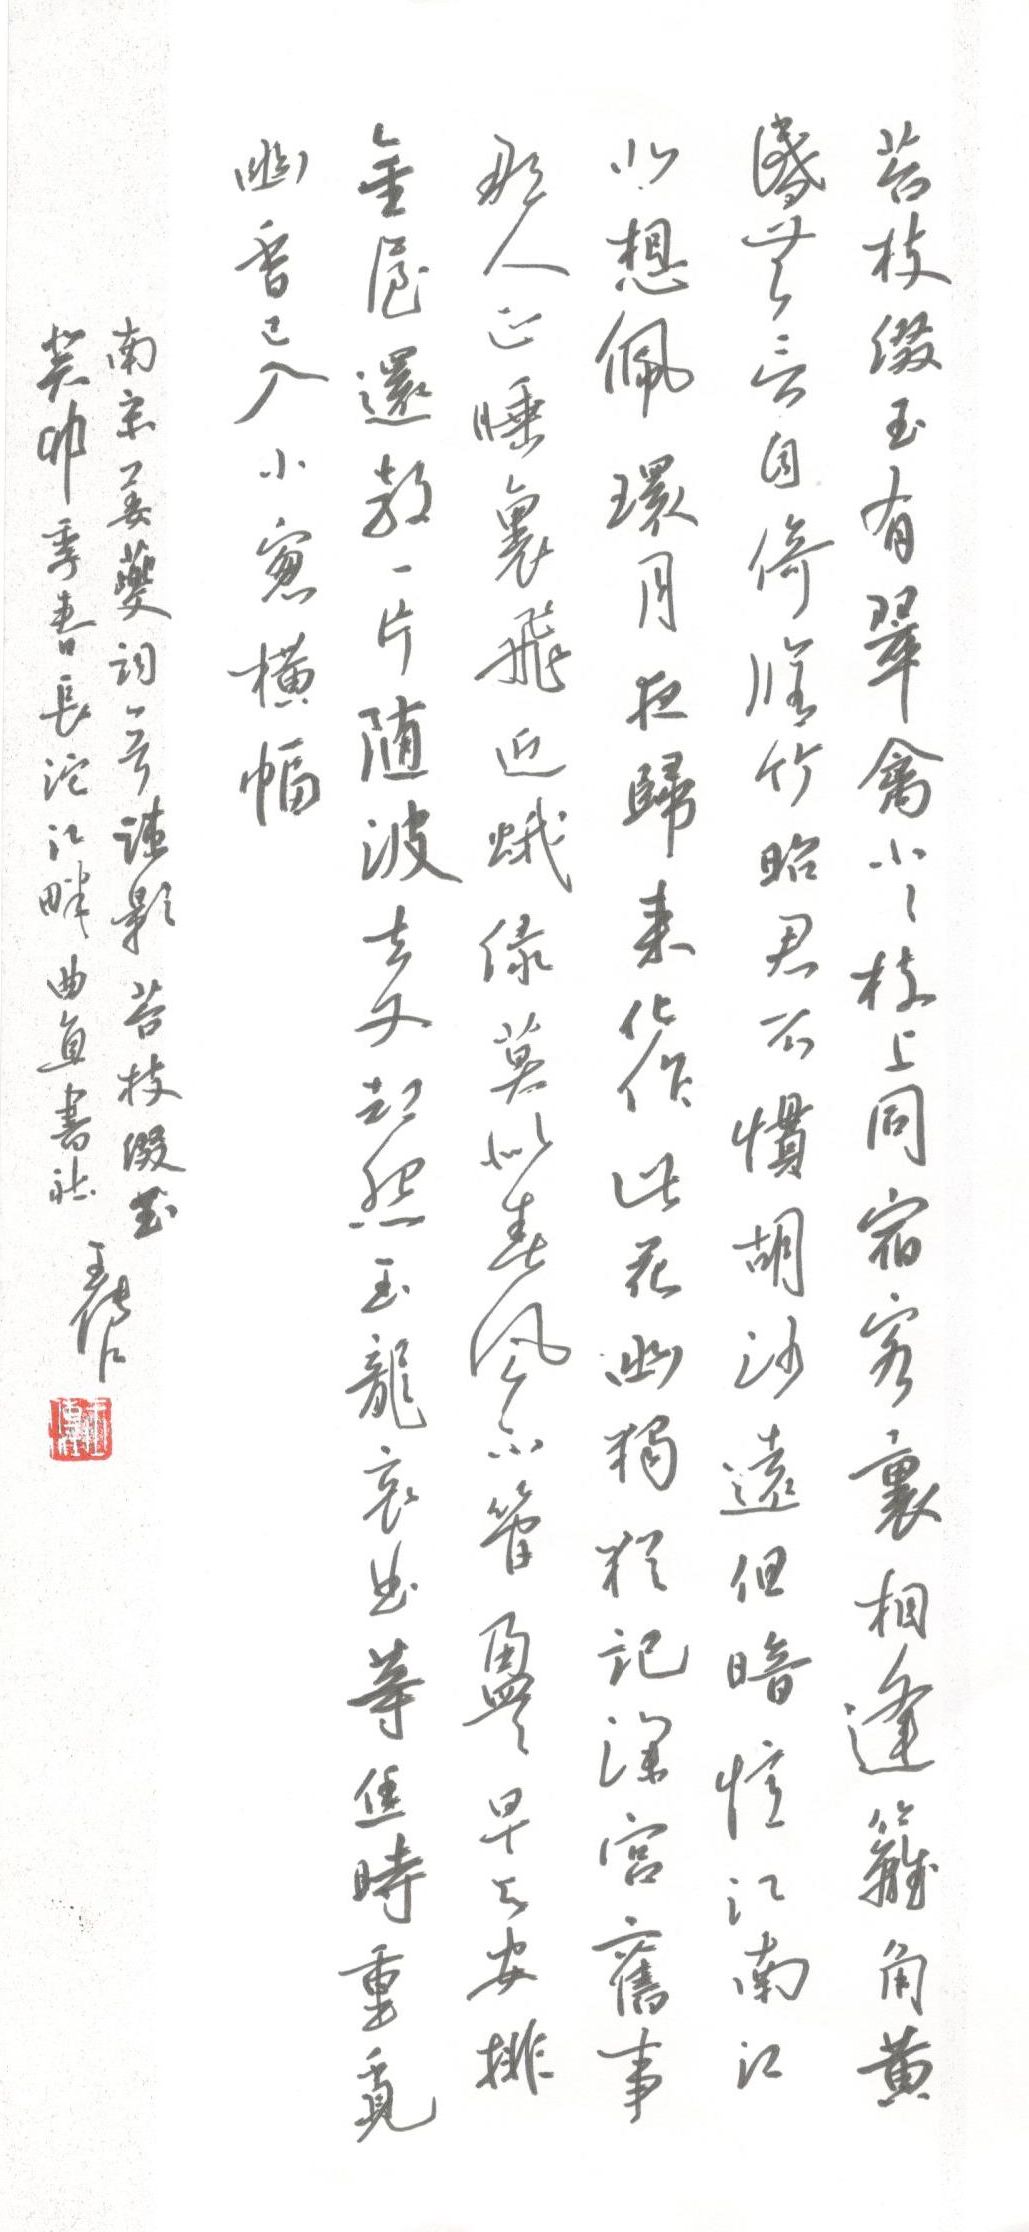 苔枝缀玉有翠禽小小枝上同宿客裏相逢籬角黄
昏無言自倚脩竹昭君不慣胡沙遠但暗憶江南江
北想佩環月夜歸來化作此花幽獨猶記深宮舊事
那人正睡裏飛近蛾绿莫似春風不管盈盈早与安排
金屋還教一片随波去又却怨玉龍哀曲等恁時重覓
幽香已入小窓横幅
南宋姜夔詞一首疎影苔枝缀玉
癸卯季春長沱江畔曲直書社